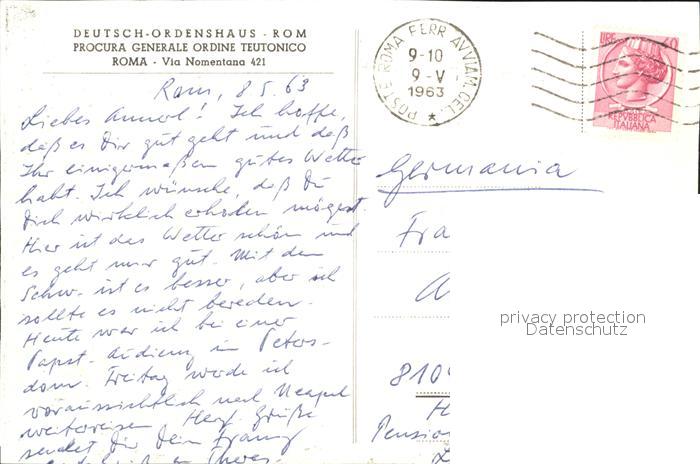 DEUTSCH-ORDENSHAUS - ROM
PROCURA GENERALE ORDINE TEUTONICO
ROMA - Via Nomentana 421
Rom, 8 5. 63
Liebes Annerl! Ich hoffe,
daß es Dir gut geht und daß
Ihr einigermaßen gutes Wetter
habt. Ich wünsche, daß Du
Dich wirklich erholen mögest.
Hier ist das Wetter schön und
es geht mir gut. Mit den
Schw. ist es besser, aber ich
sollte es nicht bereden.
Heute war ich bei einer
Papst-Audienz in Peters-
dom. Freitag werde ich
voraussichtlich nach Neapel
weiterreisen Herzl. Grüße
sendet Dir Dein Franz
POSTE ROMA FERR. AVVIAM. CEL.
9-10
9-V
1963
LIRE 40
REPVBBLICA
ITALIANA
Germania
Fra
A
810
H
Pensio
privacy protection
Datenschutz